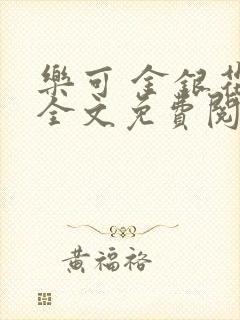 樂可 金銀花
全文免費閱
黃福裕